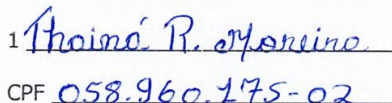 1 Thainá R. Moreira
CPF 058.960.175-02